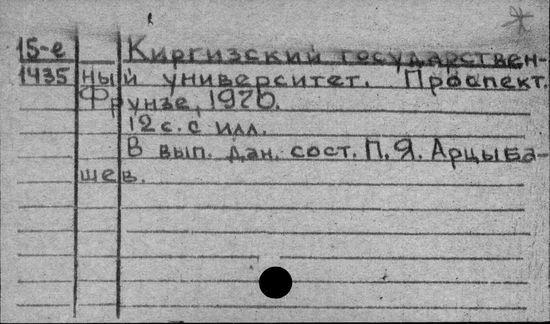 15-е Киргизский государствен-
1435 ный университет. Проспект.
Фрунзе, 1970.
12 с. с илл.
В вып. дан. сост. П. Я. Арцыба-
шев.